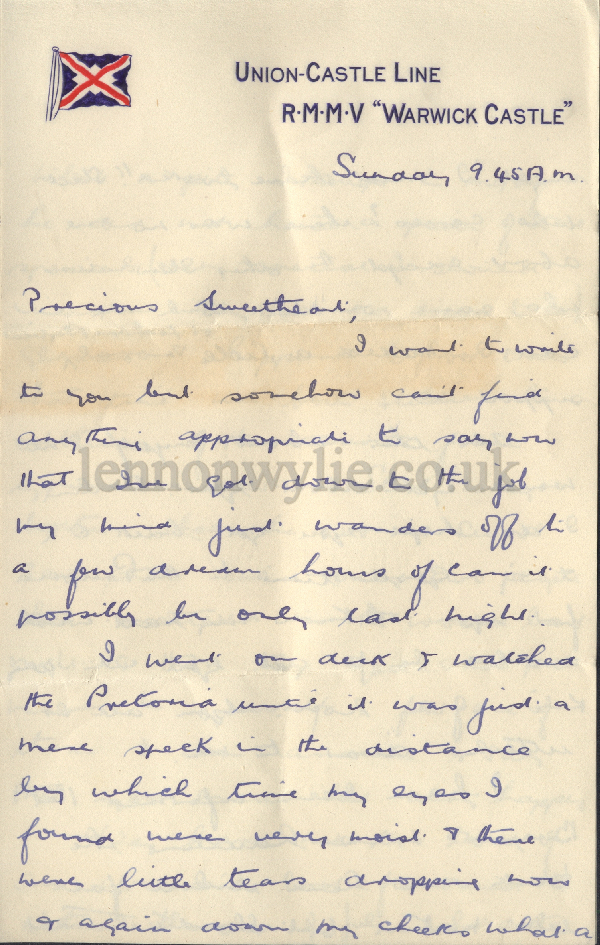 UNION-CASTLE LINE
R·M·M·V "WARWICK CASTLE"
Sunday 9.45 A.m.
Precious Sweetheart,
I want to write
to you but somehow can't find
anything appropriate to say now
that I've got down to the job
my mind just wanders off to
a few dream hours of can it
possibly be only last night.
I went on deck & watched
the Pretoria until it was just a
mere speck in the distance
by which time my eyes I
found were very moist & there
were little tears dropping now
& again down my cheeks what a
lennonwylie.co.uk